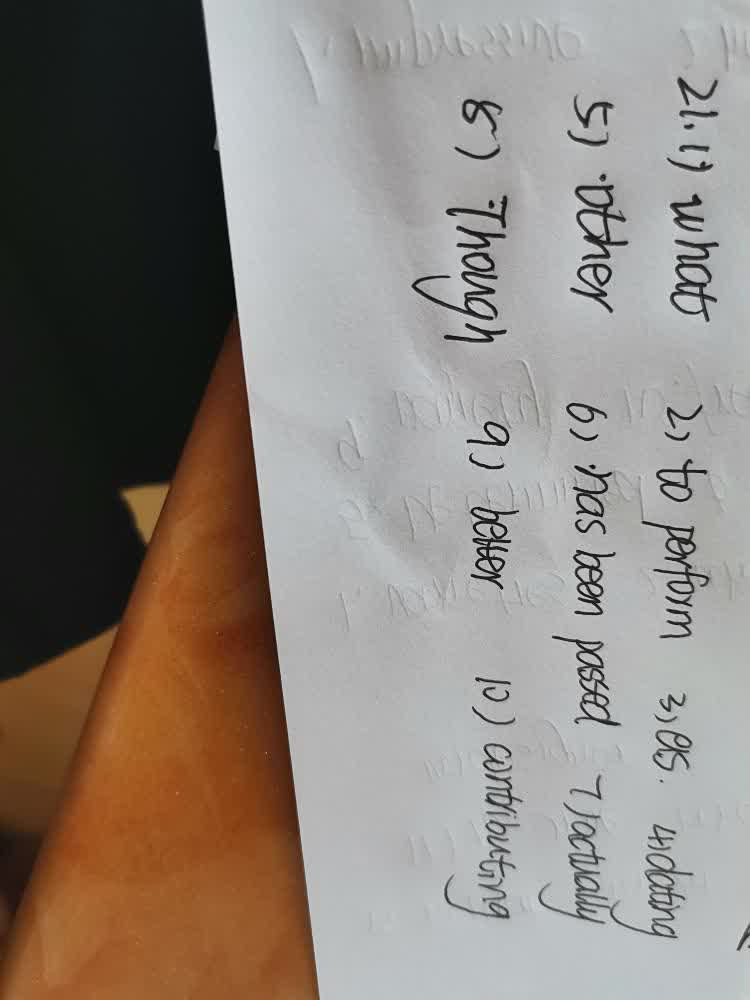 21. 1) what 2) to perform 3) as. 4) dating
5) other 6) has been passed 7) actually
8) Though 9) better 10) contributing